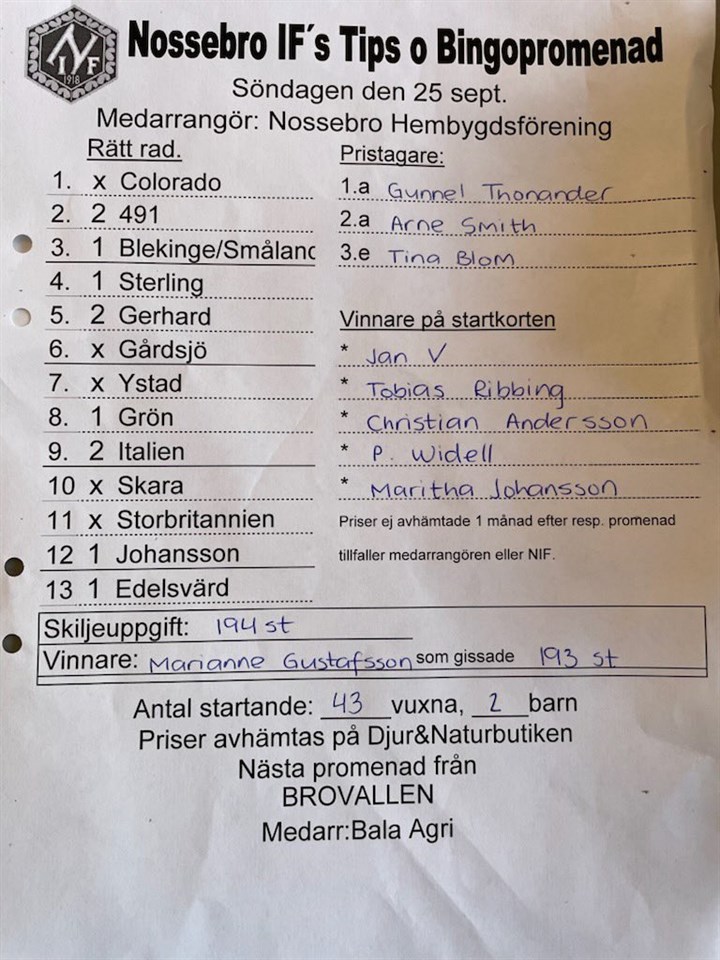 NIF
1918
Nossebro IF´s Tips o Bingopromenad
Söndagen den 25 sept.
Medarrangör: Nossebro Hembygdsförening
Rätt rad.
1. x Colorado
2. 2 491
3. 1 Blekinge/Småland
4. 1 Sterling
5. 2 Gerhard
6. x Gårdsjö
7. x Ystad
8. 1 Grön
9. 2 Italien
10 x Skara
11 x Storbritannien
12 1 Johansson
13 1 Edelsvärd
Pristagare:
1.a Gunnel Thonander
2.a Arne Smith
3.e Tina Blom
Vinnare på startkorten
* Jan V
* Tobias Ribbing
* Christian Andersson
* P. Widell
* Maritha Johansson
Priser ej avhämtade 1 månad efter resp. promenad
tillfaller medarrangören eller NIF.
Skiljeuppgift: 194 st
Vinnare: Marianne Gustafsson som gissade 193 st
Antal startande: 43 vuxna, 2 barn
Priser avhämtas på Djur&Naturbutiken
Nästa promenad från
BROVALLEN
Medarr:Bala Agri